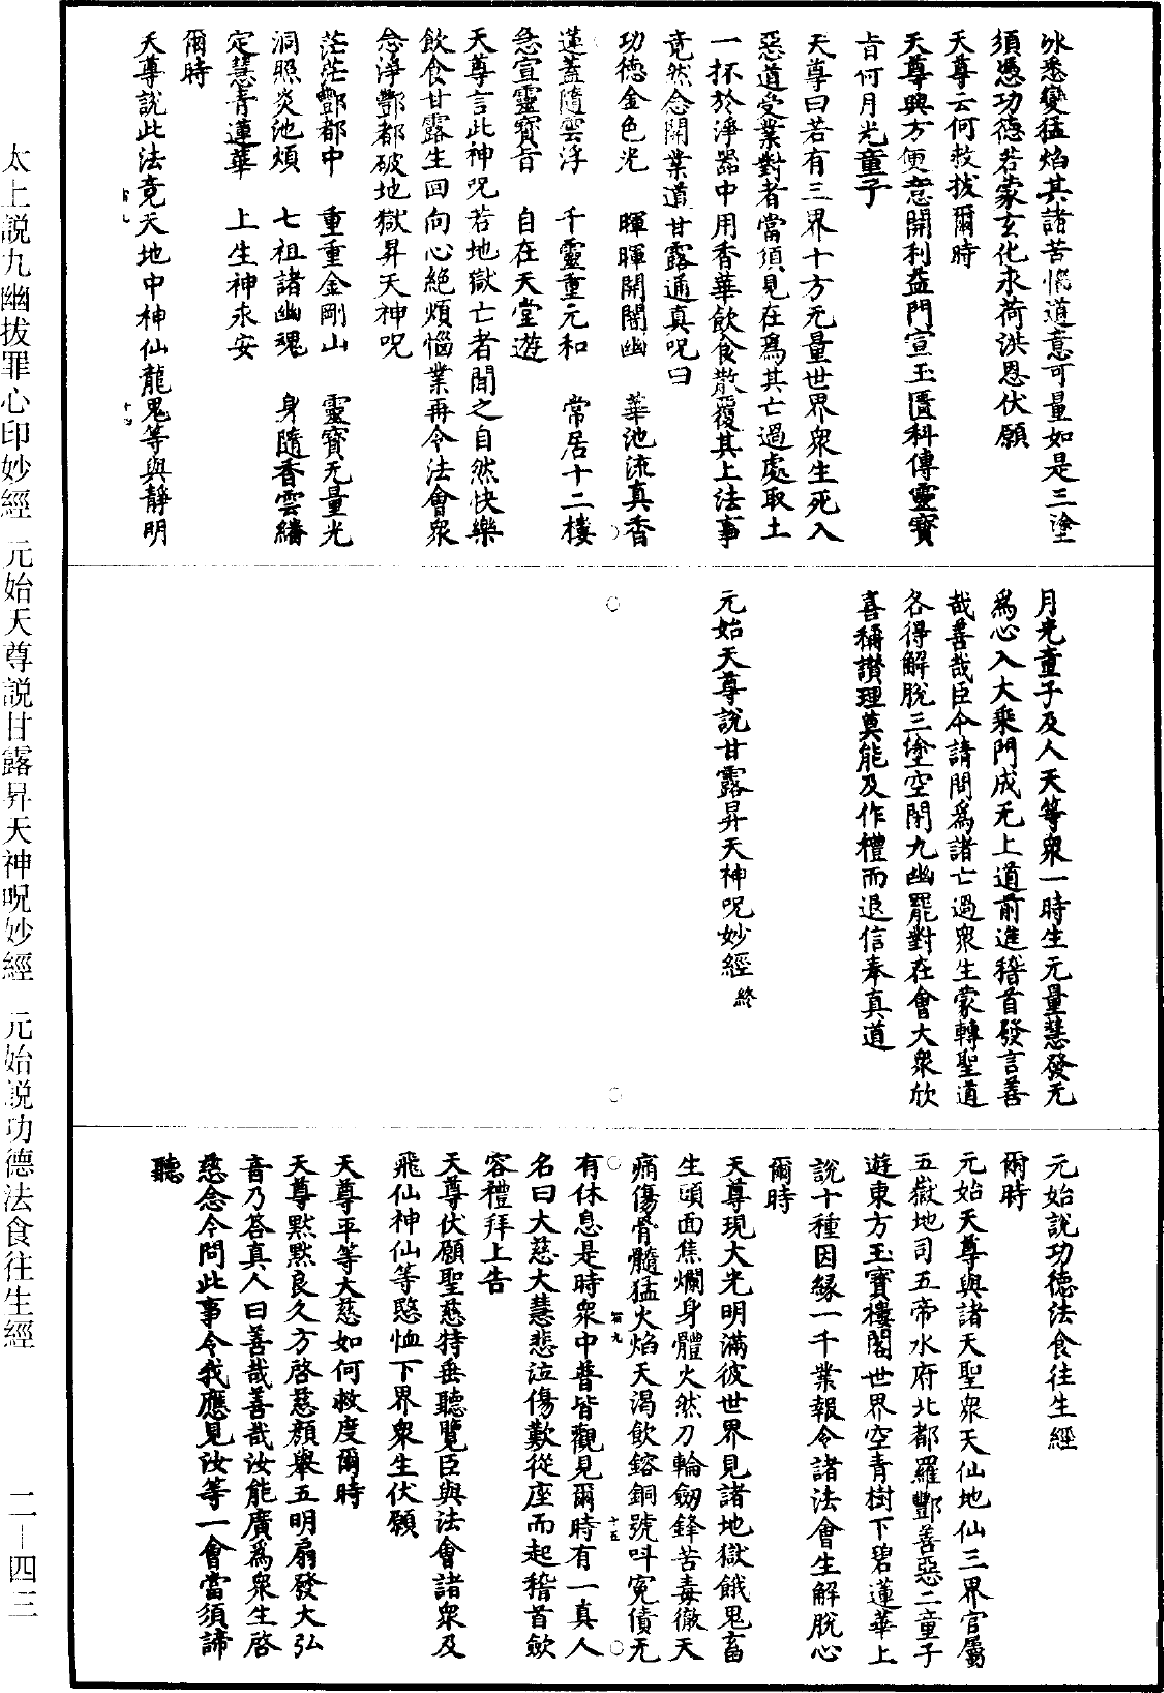 氷悉變猛焰其諸苦惱道意可量如是三塗
須憑功德若蒙玄化永荷洪恩伏願
天尊云何救拔爾時
天尊興方便意開利益門宣玉匱科傳靈寶
旨何月光童子
天尊曰若有三界十方无量世界衆生死入
惡道受業對者當須見在爲其亡過處取土
一抔於淨器中用香華飲食散覆其上法事
竟然念開業道甘露通真呪曰
功德金色光　暉暉開闇幽　華池流真香
蓮蓋隨雲浮　千靈重元和　常居十二樓
急宣靈寶旨　自在天堂遊
天尊言此神呪若地獄亡者聞之自然快樂
飲食甘露生回向心絶煩惱業再令法會衆
念淨酆都破地獄昇天神呪
茫茫酆都中　重重金剛山　靈寶无量光
洞照炎池煩　七祖諸幽魂　身隨香雲繙
定慧青蓮華　上生神永安
爾時
天尊說此法竟天地中神仙龍鬼等與靜明
月光童子及人天等衆一時生元量慧發无
爲心入大乘門成无上道前進稽首發言善
哉善哉臣今請問爲諸亡過衆生蒙轉聖道
各得解脫三塗空閑九幽罷對在會大衆欣
喜稱讃理莫能及作禮而退信奉真道
元始天尊說甘露昇天神呪妙經終
元始說功德法食往生經
爾時
元始天尊與諸天聖衆天仙地仙三界官屬
五嶽地司五帝水府北都羅酆善惡二童子
遊東方玉寶樓閣世界空青樹下碧蓮華上
說十種因緣一千業報令諸法會生解脫心
爾時
天尊現大光明滿彼世界見諸地獄餓鬼畜
生頭面焦爛身體火然刀輪劒鋒苦毒徹天
痛傷骨髓猛火焰天渴飲鎔銅號叫寃債无
有休息是時衆中普皆觀見爾時有一真人
名曰大慈大慧悲泣傷歎從座而起稽首斂
容禮拜上告
天尊伏願聖慈特垂聽覽臣與法會諸衆及
飛仙神仙等愍恤下界衆生伏願
天尊平等大慈如何救度爾時
天尊黙黙良久方啓慈顔舉五明扇發大弘
音乃答真人曰善哉善哉汝能廣爲衆生啓
慈念今問此事令我應見汝等一會當須諦
聽
太上説九幽拔罪心印妙經　元始天尊説甘露昇天神呪妙經　元始説功德法食往生經　二—四三